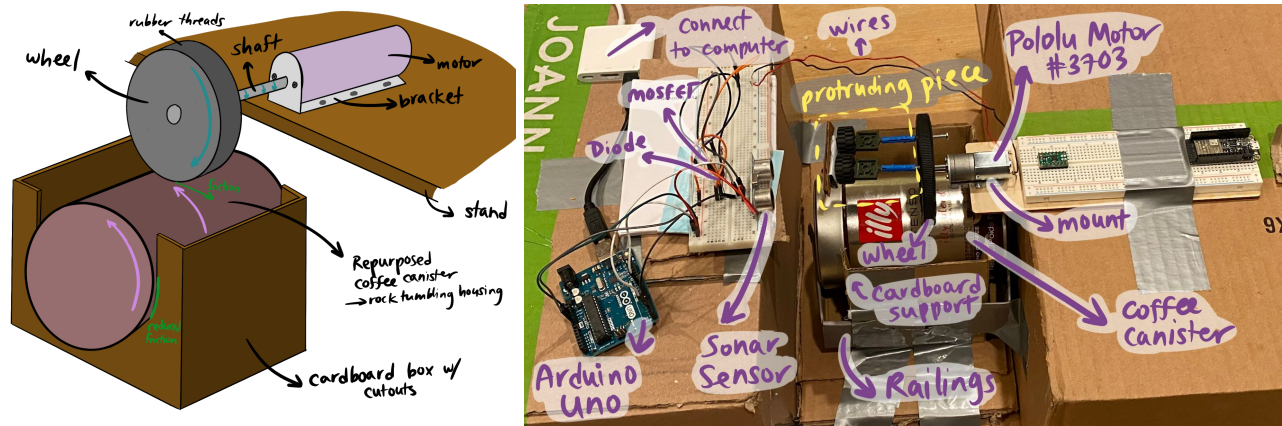 rubber threads
wheel
shaft
motor
bracket
friction
stand
Repurposed
coffee canister
→rock tumbling housing
reduced
friction
cardboard box w/
cutouts
JOANN
connect
to computer
wires
Pololu Motor
#3703
mosfet
protruding piece
Diode
illy
wheel
mount
cardboard
support
coffee
canister
Arduino
Uno
Sonar
Sensor
Railings